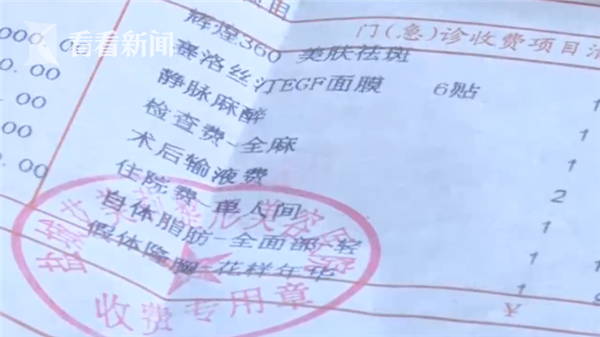 看看新闻
门(急)诊收费项目清
辉煌360 美肤祛斑
000.00
赛洛丝汀EGF面膜 6贴 1
0.00
静脉麻醉 1
.00
检查费-全麻 1
.00
术后输液费 2
.00
住院费-单人间 1
自体脂肪-全面部-轻 1 1
假体隆胸-花样年华 1
¥
收费专用章